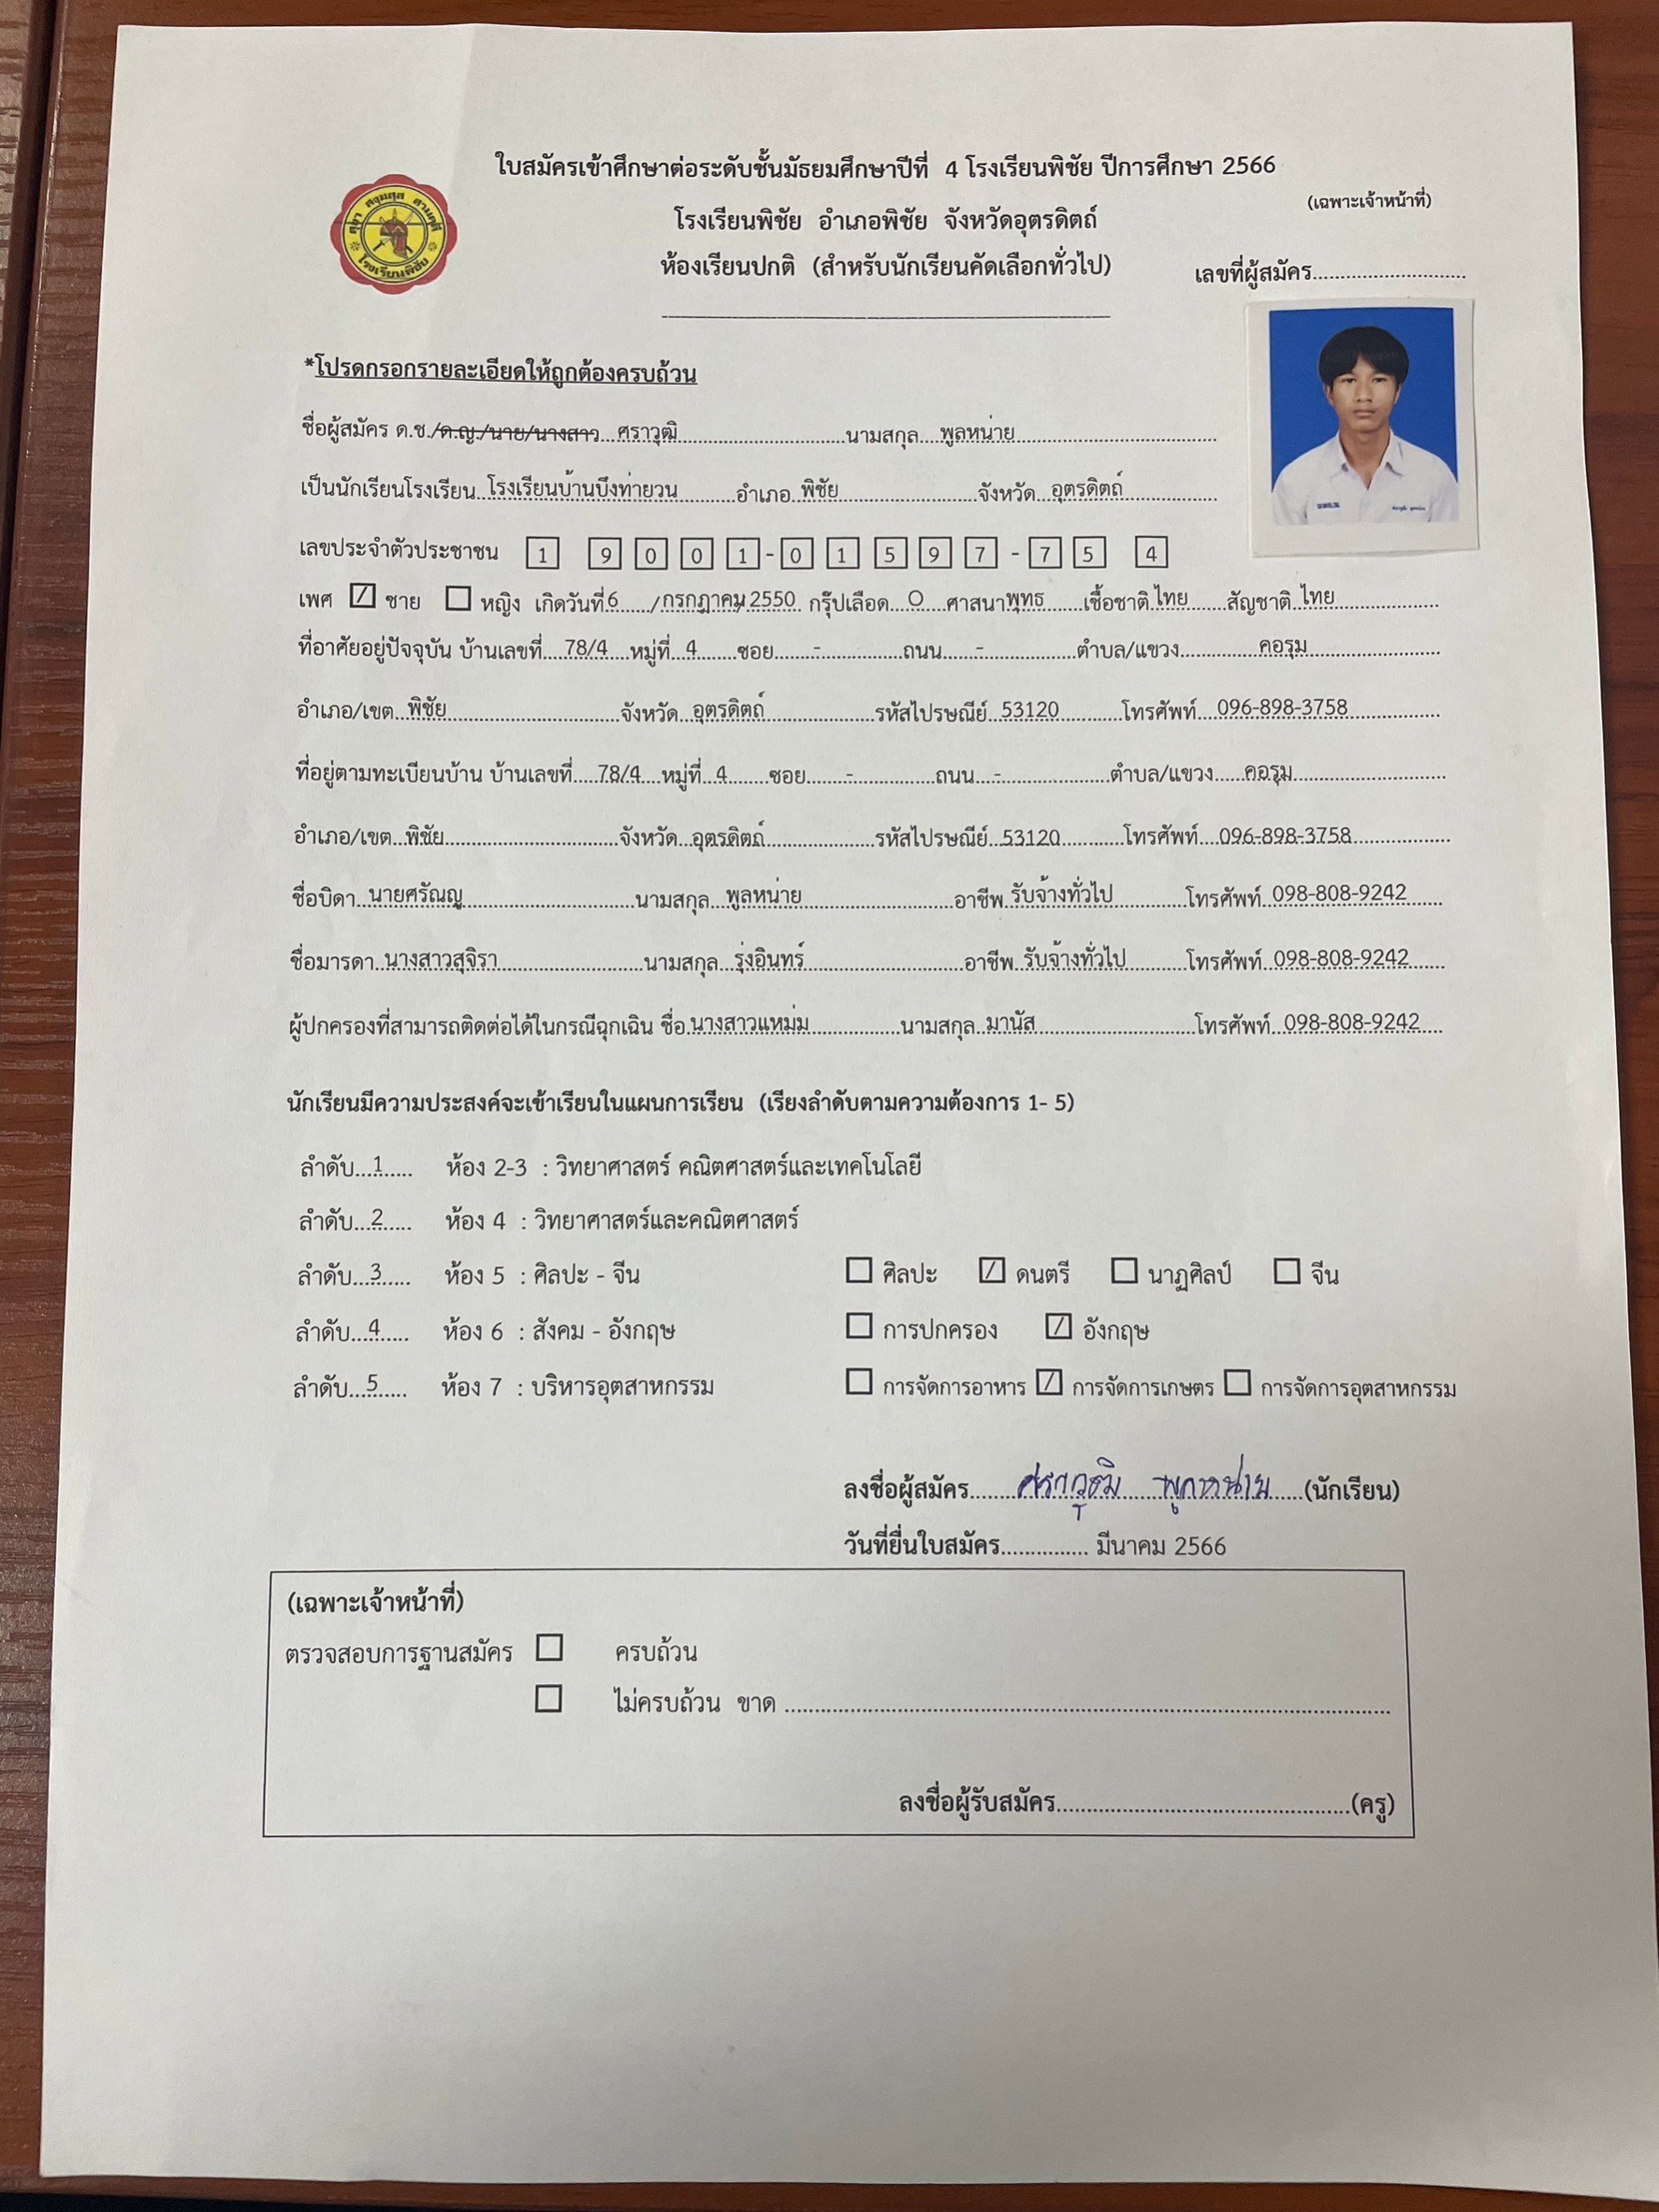 ใบสมัครเข้าศึกษาต่อระดับชั้นมัธยมศึกษาปีที่ 4 โรงเรียนพิชัย ปีการศึกษา 2566
(เฉพาะเจ้าหน้าที่)
โรงเรียนพิชัย อำเภอพิชัย จังหวัดอุตรดิตถ์
ห้องเรียนปกติ (สำหรับนักเรียนคัดเลือกทั่วไป)
เลขที่ผู้สมัคร..........................
โรงเรียนพิชัย
*โปรดกรอกรายละเอียดให้ถูกต้องครบถ้วน
ชื่อผู้สมัคร ด.ช./ด.ญ./นาย/นางสาว...ศราวุฒิ............................นามสกุล....พูลหน่าย..................................
เป็นนักเรียนโรงเรียน..โรงเรียนบ้านบึงท่ายวน.........อำเภอ..พิชัย........................จังหวัด...อุตรดิตถ์................
เลขประจำตัวประชาชน 1 9 0 0 1 - 0 1 5 9 7 - 7 5 4
เพศ / ชาย หญิง เกิดวันที่6...../กรกฎาคม/2550 กรุ๊ปเลือด...O ศาสนาพุทธ......เชื้อชาติ ไทย สัญชาติ ไทย..................
ที่อาศัยอยู่ปัจจุบัน บ้านเลขที่....78/4....หมู่ที่..4.......ซอย.......-..............ถนน......-................ตำบล/แขวง..............คอรุม......................
อำเภอ/เขต...พิชัย.............................จังหวัด...อุตรดิตถ์...................รหัสไปรษณีย์...53120..........โทรศัพท์....096-898-3758................
ที่อยู่ตามทะเบียนบ้าน บ้านเลขที่....78/4....หมู่ที่..4.......ซอย.......-..............ถนน...-...................ตำบล/แขวง......คอรุม..........................
อำเภอ/เขต...พิชัย.............................จังหวัด...อุตรดิตถ์...................รหัสไปรษณีย์...53120...........โทรศัพท์....096-898-3758.................
ชื่อบิดา...นายศรัณญู.............................นามสกุล...พูลหน่าย..........................อาชีพ รับจ้างทั่วไป............โทรศัพท์..098-808-9242......
ชื่อมารดา..นางสาวสุจิรา.........................นามสกุล...รุ่งอินทร์..........................อาชีพ..รับจ้างทั่วไป..........โทรศัพท์..098-808-9242......
ผู้ปกครองที่สามารถติดต่อได้ในกรณีฉุกเฉิน ชื่อ.นางสาวแหม่ม...............นามสกุล..มานัส...........................โทรศัพท์..098-808-9242....
นักเรียนมีความประสงค์จะเข้าเรียนในแผนการเรียน (เรียงลำดับตามความต้องการ 1- 5)
ลำดับ...1..... ห้อง 2-3 : วิทยาศาสตร์ คณิตศาสตร์และเทคโนโลยี
ลำดับ...2..... ห้อง 4 : วิทยาศาสตร์และคณิตศาสตร์
ลำดับ...3..... ห้อง 5 : ศิลปะ - จีน ศิลปะ / ดนตรี นาฏศิลป์ จีน
ลำดับ...4..... ห้อง 6 : สังคม - อังกฤษ การปกครอง / อังกฤษ
ลำดับ...5..... ห้อง 7 : บริหารอุตสาหกรรม การจัดการอาหาร / การจัดการเกษตร การจัดการอุตสาหกรรม
ลงชื่อผู้สมัคร........ศราวุฒิ พูลหน่าย......(นักเรียน)
วันที่ยื่นใบสมัคร............... มีนาคม 2566
(เฉพาะเจ้าหน้าที่)
ตรวจสอบการฐานสมัคร ครบถ้วน
ไม่ครบถ้วน ขาด ......................................................................................................
ลงชื่อผู้รับสมัคร..................................................(ครู)